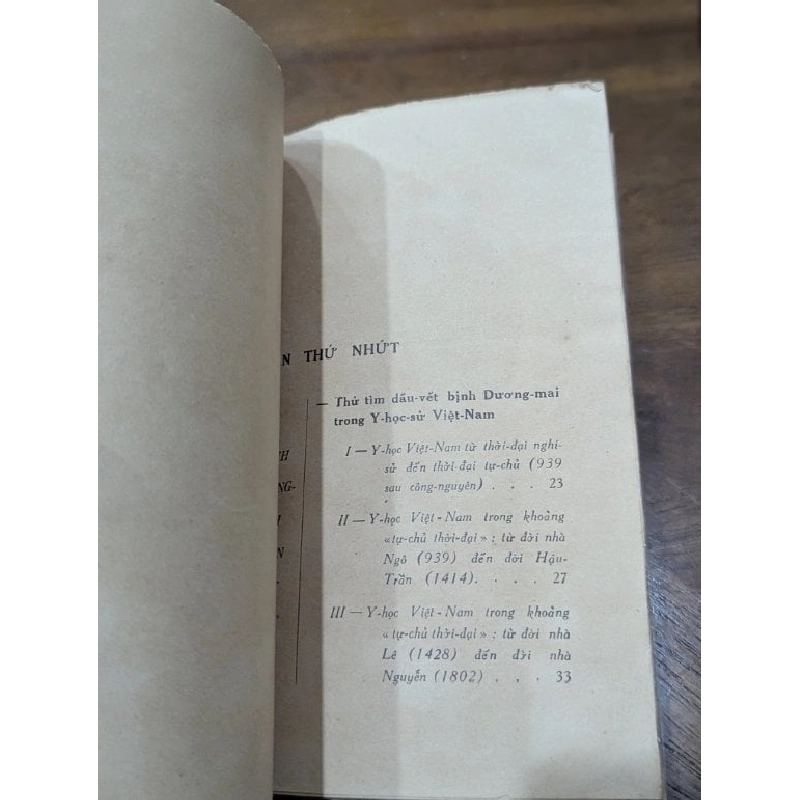 N THỨ NHỨT
— Thử tìm dấu-vết bịnh Dương-mai
trong Y-học-sử Việt-Nam
I — Y-học Việt-Nam từ thời-đại nghi-
sử đến thời-đại tự-chủ (939
sau công-nguyên) . . . 23
II — Y-học Việt-Nam trong khoảng
«tự-chủ thời-đại» ; từ đời nhà
Ngô (939) đến đời Hậu-
Trần (1414). . . . 27
III — Y-học Việt-Nam trong khoảng
«tự-chủ thời-đại» ; từ đời nhà
Lê (1428) đến đời nhà
Nguyễn (1802) . . . 33
H
NG-
I
N